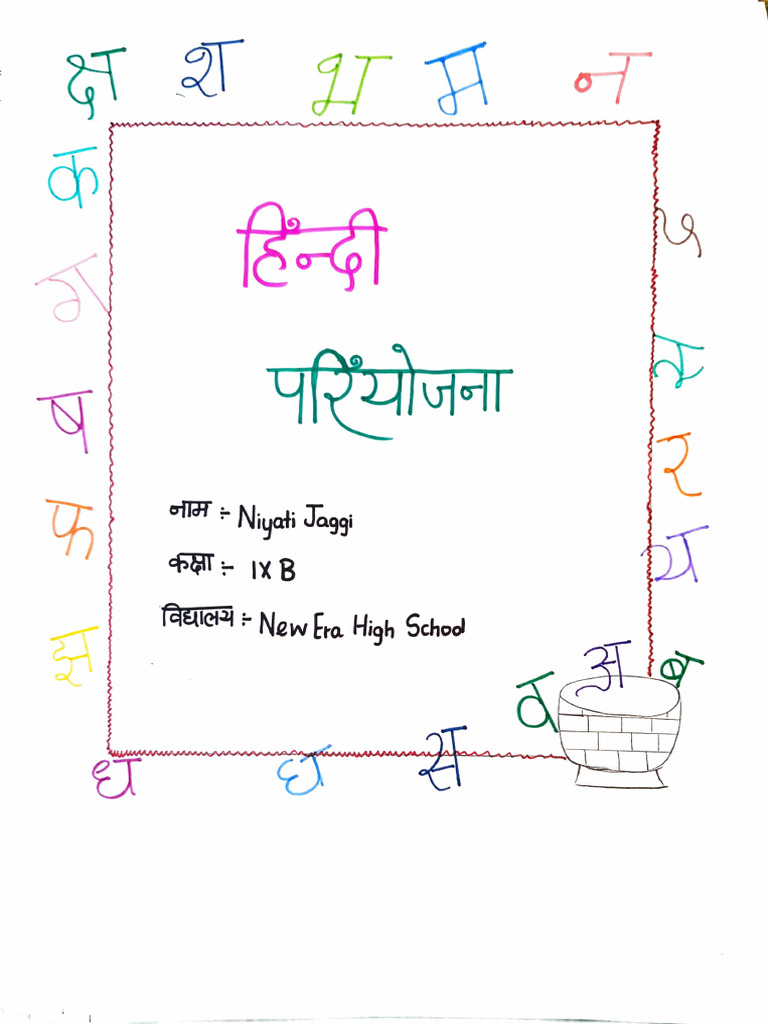 क्ष श भ म न
क
ग
ष
फ
झ
हिँन्दी
परिँयोजना
नाम :- Niyati Jaggi
कक्षा :- IX B
विद्यालय :- New Era High School
र
य
व अ ब
ध घ स